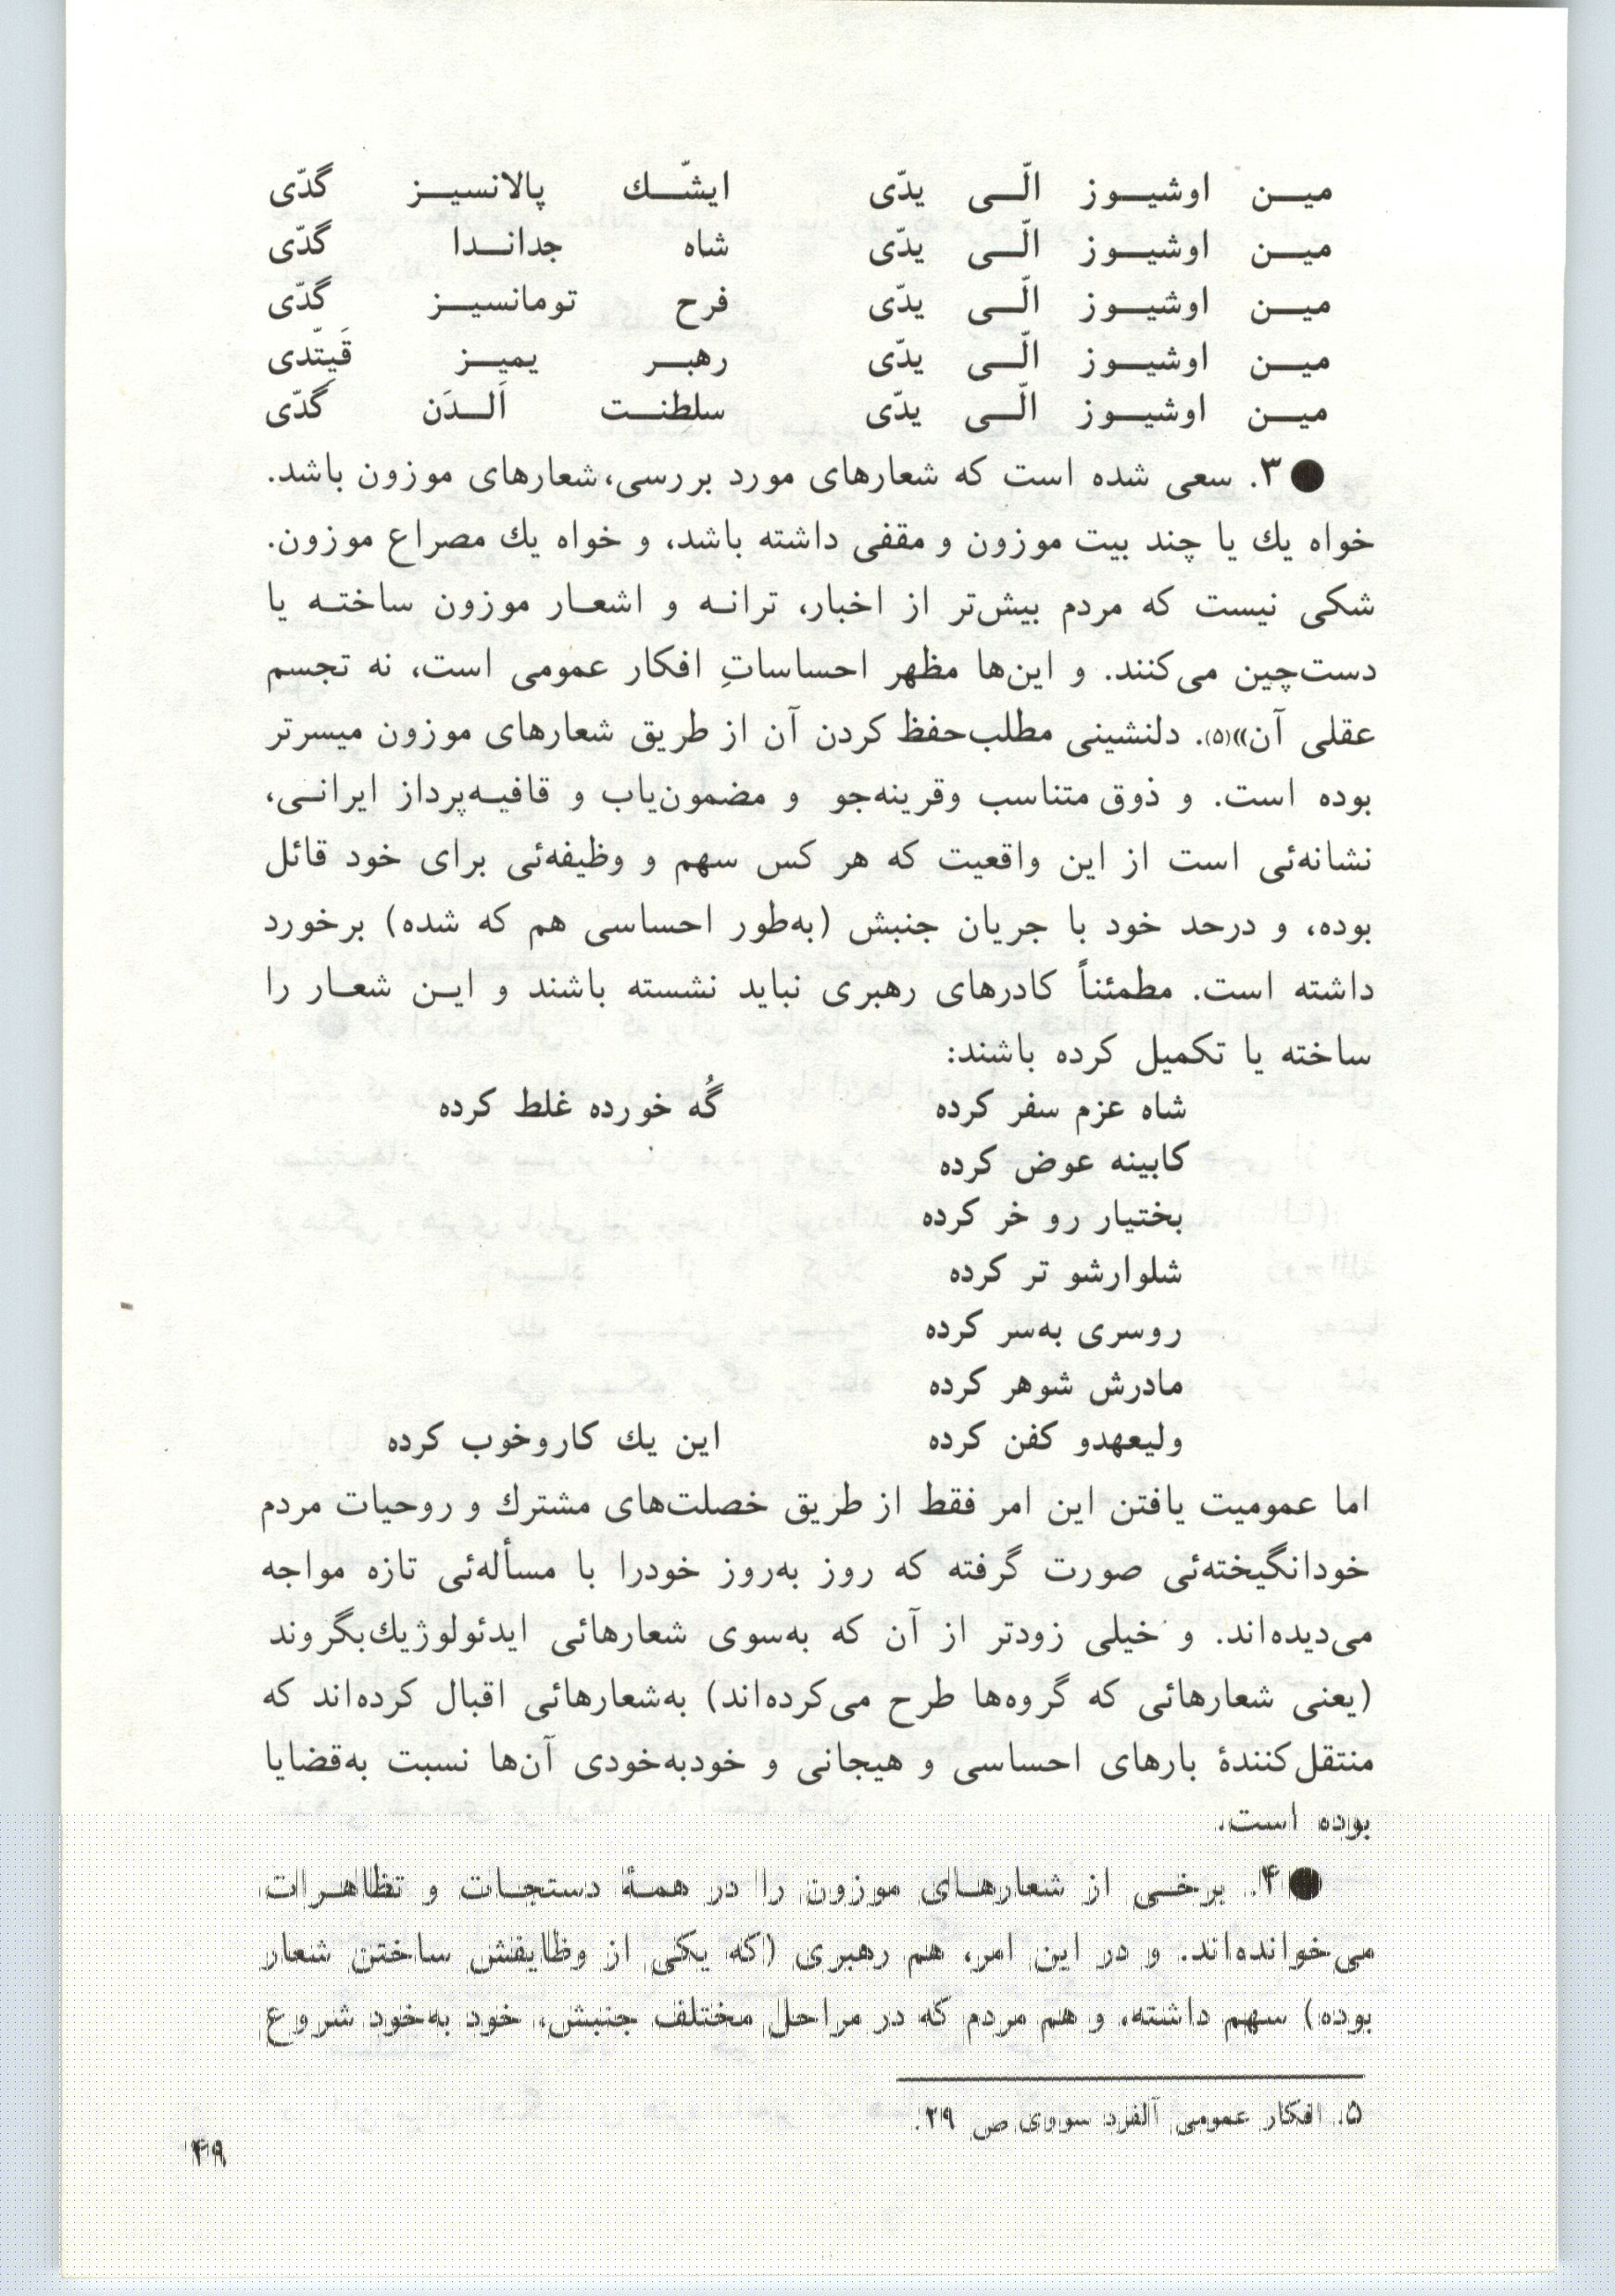 مین اوشیوز الّی یدّی ایشّك پالانسیز گدّی
مین اوشیوز الّی یدّی شاه جداندا گدّی
مین اوشیوز الّی یدّی فرح تومانسیز گدّی
مین اوشیوز الّی یدّی رهبر یمیز قَیِتّدی
مین اوشیوز الّی یدّی سلطنت اَلدَن گدّی
●۳. سعی شده است که شعارهای مورد بررسی، شعارهای موزون باشد.
خواه یك یا چند بیت موزون و مقفی داشته باشد، و خواه یك مصراع موزون.
شکی نیست که مردم بیش‌تر از اخبار، ترانه و اشعار موزون ساخته یا
دست‌چین می‌کنند. و این‌ها مظهر احساساتِ افکار عمومی است، نه تجسم
عقلی آن»(۵). دلنشینی مطلب‌حفظ کردن آن از طریق شعارهای موزون میسرتر
بوده است. و ذوق متناسب وقرینه‌جو و مضمون‌یاب و قافیه‌پرداز ایرانی،
نشانه‌ئی است از این واقعیت که هر کس سهم و وظیفه‌ئی برای خود قائل
بوده، و درحد خود با جریان جنبش (به‌طور احساسی هم که شده) برخورد
داشته است. مطمئناً کادرهای رهبری نباید نشسته باشند و این شعار را
ساخته یا تکمیل کرده باشند:
شاه عزم سفر کرده گُه خورده غلط کرده
کابینه عوض کرده
بختیار رو خر کرده
شلوارشو تر کرده
روسری به‌سر کرده
مادرش شوهر کرده
ولیعهدو کفن کرده این یك کاروخوب کرده
اما عمومیت یافتن این امر فقط از طریق خصلت‌های مشترك و روحیات مردم
خودانگیخته‌ئی صورت گرفته که روز به‌روز خودرا با مسأله‌ئی تازه مواجه
می‌دیده‌اند. و خیلی زودتر از آن که به‌سوی شعارهائی ایدئولوژیك‌بگروند
(یعنی شعارهائی که گروه‌ها طرح می‌کرده‌اند) به‌شعارهائی اقبال کرده‌اند که
منتقل‌کنندهٔ بارهای احساسی و هیجانی و خودبه‌خودی آن‌ها نسبت به‌قضایا
بوده است.
●۴. برخی از شعارهای موزون را در همهٔ دستجات و تظاهرات
می‌خوانده‌اند. و در این امر، هم رهبری (که یکی از وظایفش ساختن شعار
بوده) سهم داشته، و هم مردم که در مراحل مختلف جنبش، خود به‌خود شروع
۵. افکار عمومی آلفرد سووی ص ۲۹.
۴۹